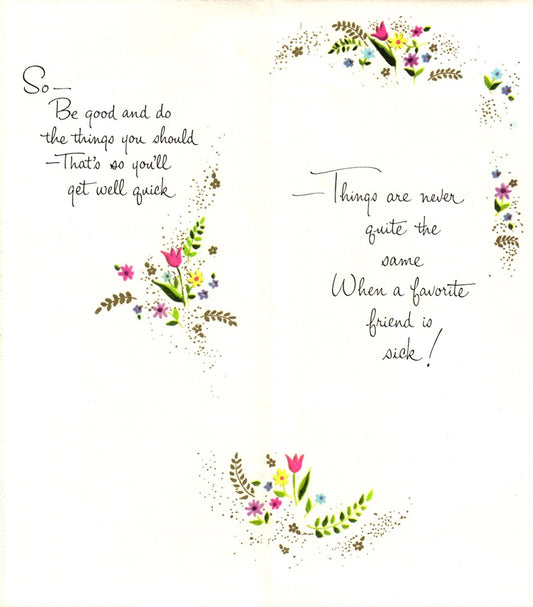 So—
Be good and do
the things you should
—That's so you'll
get well quick
—Things are never
quite the
same
When a favorite
friend is
sick!